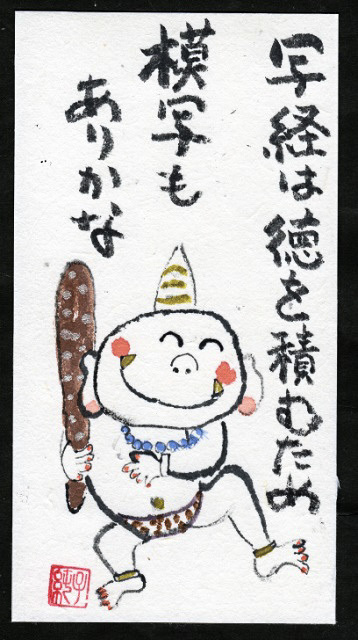 写経は徳を積むため
模写も
ありかな
純子